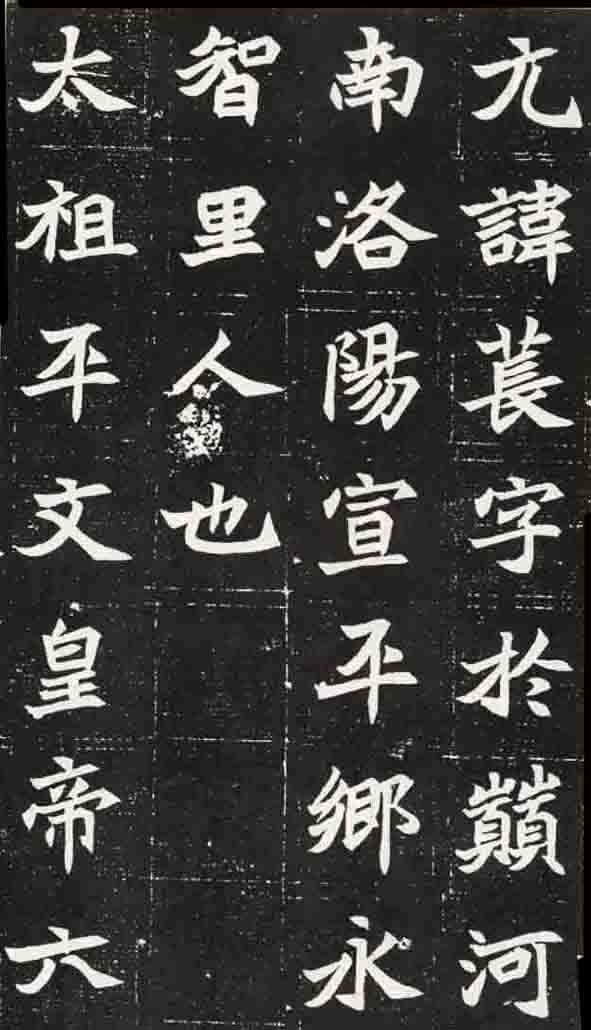 元諱萇字於巔河
南洛陽宣平鄉永
智里人也
太祖平文皇帝六